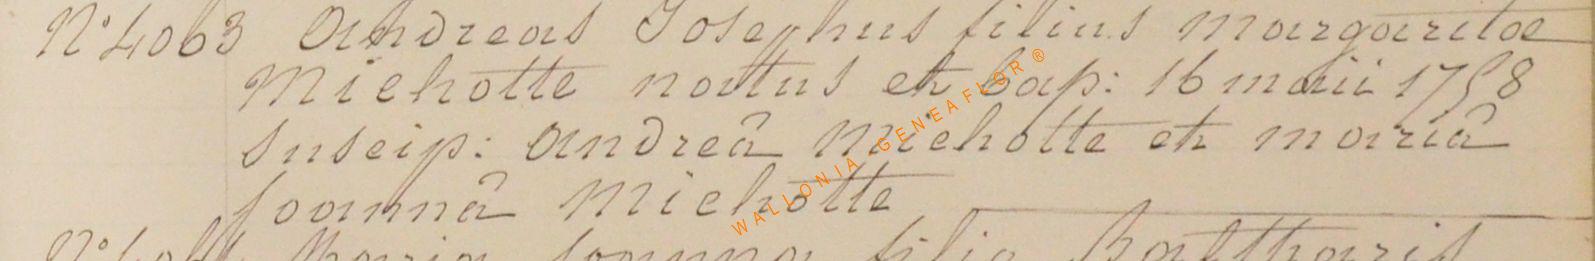 N° 4063 Andreas Josephus filius margaritae
Michotte natus et bap: 16 maii 1758
suscip: andreâ Michotte et mariâ
joannâ Michotte
Maria joanna filia Balthazaris
WALLONIA GENEAFLOR ®